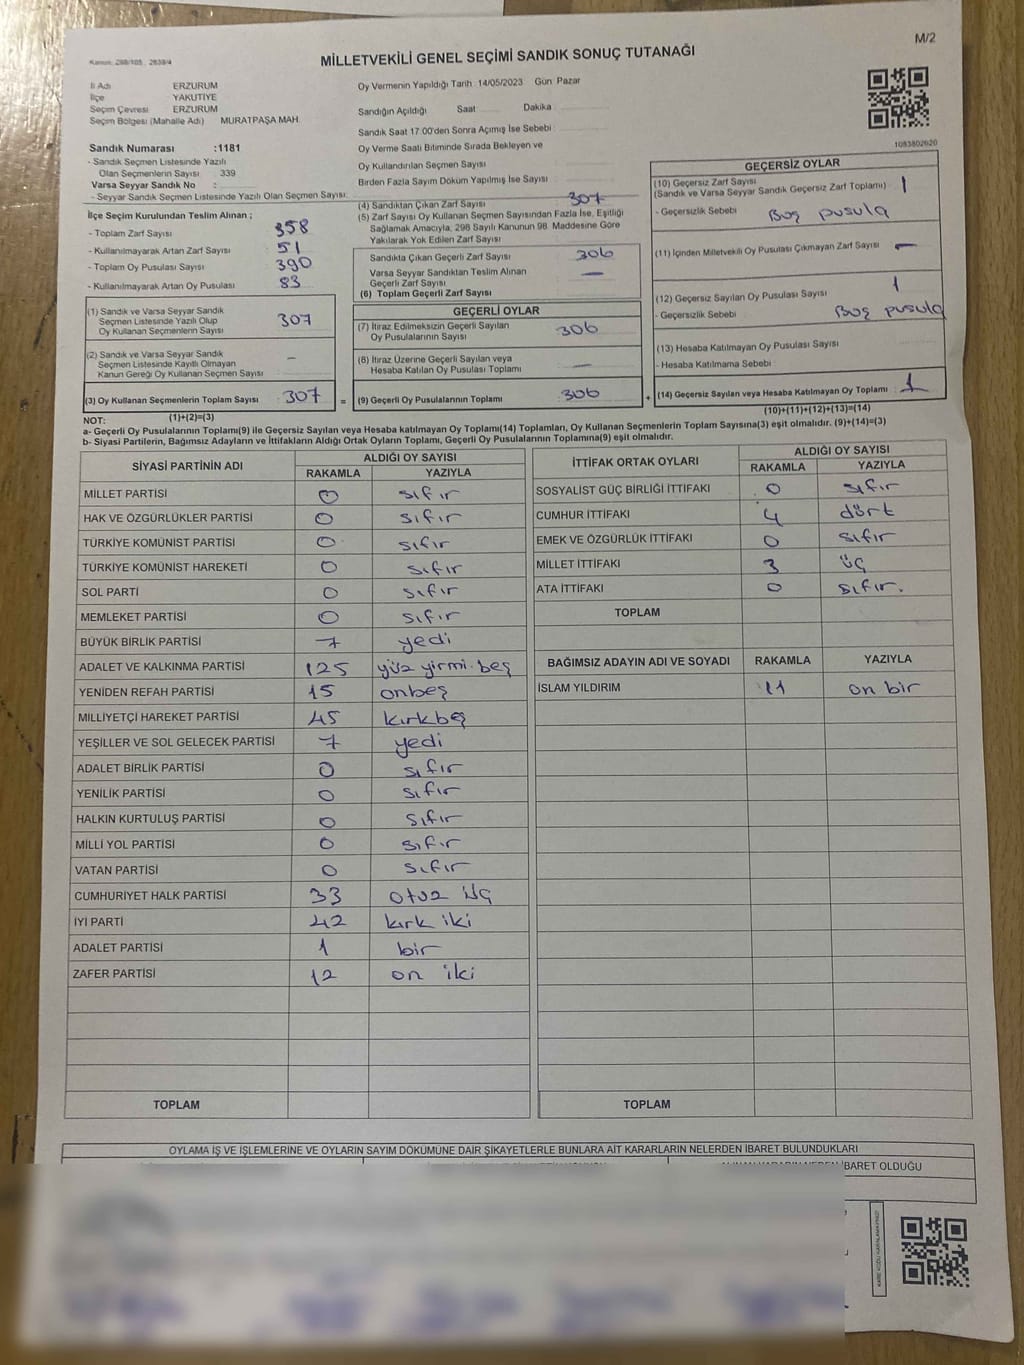 M/2
Kanun: 298/105 , 2839/4
MİLLETVEKİLİ GENEL SEÇİMİ SANDIK SONUÇ TUTANAĞI
İl Adı ERZURUM
İlçe YAKUTİYE
Seçim Çevresi ERZURUM
Seçim Bölgesi (Mahalle Adı) MURATPAŞA MAH.
Sandık Numarası :1181
- Sandık Seçmen Listesinde Yazılı
Olan Seçmenlerin Sayısı 339
Varsa Seyyar Sandık No :
- Seyyar Sandık Seçmen Listesinde Yazılı Olan Seçmen Sayısı:
Oy Vermenin Yapıldığı Tarih : 14/05/2023 Gün Pazar
Sandığın Açıldığı Saat Dakika
Sandık Saat 17.00'den Sonra Açımış İse Sebebi
Oy Verme Saati Bitiminde Sırada Bekleyen ve
Oy Kullandırılan Seçmen Sayısı
Birden Fazla Sayım Döküm Yapılmış İse Sayısı
1083802620
İlçe Seçim Kurulundan Teslim Alınan ;
- Toplam Zarf Sayısı 358
- Kullanılmayarak Artan Zarf Sayısı 51
- Toplam Oy Pusulası Sayısı 390
- Kullanılmayarak Artan Oy Pusulası 83
(1) Sandık ve Varsa Seyyar Sandık
Seçmen Listesinde Yazılı Olup
Oy Kullanan Seçmenlerin Sayısı 307
(2) Sandık ve Varsa Seyyar Sandık
Seçmen Listesinde Kayıtlı Olmayan
Kanun Gereği Oy Kullanan Seçmen Sayısı –
(3) Oy Kullanan Seçmenlerin Toplam Sayısı 307 =
(1)+(2)=(3)
(4) Sandıktan Çıkan Zarf Sayısı 307
(5) Zarf Sayısı Oy Kullanan Seçmen Sayısından Fazla İse, Eşitliği
Sağlamak Amacıyla, 298 Sayılı Kanunun 98. Maddesine Göre
Yakılarak Yok Edilen Zarf Sayısı
Sandıkta Çıkan Geçerli Zarf Sayısı 306
Varsa Seyyar Sandıktan Teslim Alınan
Geçerli Zarf Sayısı —
(6) Toplam Geçerli Zarf Sayısı
GEÇERLİ OYLAR
(7) İtiraz Edilmeksizin Geçerli Sayılan
Oy Pusulalarının Sayısı 306
(8) İtiraz Üzerine Geçerli Sayılan veya
Hesaba Katılan Oy Pusulası Toplamı —
(9) Geçerli Oy Pusulalarının Toplamı 306 +
GEÇERSİZ OYLAR
(10) Geçersiz Zarf Sayısı
(Sandık ve Varsa Seyyar Sandık Geçersiz Zarf Toplamı) 1
- Geçersizlik Sebebi Boş pusula
(11) İçinden Milletvekili Oy Pusulası Çıkmayan Zarf Sayısı —
(12) Geçersiz Sayılan Oy Pusulası Sayısı 1
- Geçersizlik Sebebi Boş pusula
(13) Hesaba Katılmayan Oy Pusulası Sayısı
- Hesaba Katılmama Sebebi
(14) Geçersiz Sayılan veya Hesaba Katılmayan Oy Toplamı 1
(10)+(11)+(12)+(13)=(14)
NOT:
a- Geçerli Oy Pusulalarının Toplamı(9) ile Geçersiz Sayılan veya Hesaba katılmayan Oy Toplamı(14) Toplamları, Oy Kullanan Seçmenlerin Toplam Sayısına(3) eşit olmalıdır. (9)+(14)=(3)
b- Siyasi Partilerin, Bağımsız Adayların ve İttifakların Aldığı Ortak Oyların Toplamı, Geçerli Oy Pusulalarının Toplamına(9) eşit olmalıdır.
SİYASİ PARTİNİN ADI ALDIĞI OY SAYISI
RAKAMLA YAZIYLA
MİLLET PARTİSİ 0 sıfır
HAK VE ÖZGÜRLÜKLER PARTİSİ 0 sıfır
TÜRKİYE KOMÜNİST PARTİSİ 0 sıfır
TÜRKİYE KOMÜNİST HAREKETİ 0 sıfır
SOL PARTİ 0 sıfır
MEMLEKET PARTİSİ 0 sıfır
BÜYÜK BİRLİK PARTİSİ 7 yedi
ADALET VE KALKINMA PARTİSİ 125 yüz yirmi beş
YENİDEN REFAH PARTİSİ 15 onbeş
MİLLİYETÇİ HAREKET PARTİSİ 45 kırkbeş
YEŞİLLER VE SOL GELECEK PARTİSİ 7 yedi
ADALET BİRLİK PARTİSİ 0 sıfır
YENİLİK PARTİSİ 0 sıfır
HALKIN KURTULUŞ PARTİSİ 0 sıfır
MİLLİ YOL PARTİSİ 0 sıfır
VATAN PARTİSİ 0 sıfır
CUMHURİYET HALK PARTİSİ 33 otuz üç
İYİ PARTİ 42 kırk iki
ADALET PARTİSİ 1 bir
ZAFER PARTİSİ 12 on iki
TOPLAM
İTTİFAK ORTAK OYLARI ALDIĞI OY SAYISI
RAKAMLA YAZIYLA
SOSYALİST GÜÇ BİRLİĞİ İTTİFAKI 0 sıfır
CUMHUR İTTİFAKI 4 dört
EMEK VE ÖZGÜRLÜK İTTİFAKI 0 sıfır
MİLLET İTTİFAKI 3 üç
ATA İTTİFAKI 0 sıfır.
TOPLAM
BAĞIMSIZ ADAYIN ADI VE SOYADI RAKAMLA YAZIYLA
İSLAM YILDIRIM 11 on bir
TOPLAM
OYLAMA İŞ VE İŞLEMLERİNE VE OYLARIN SAYIM DÖKÜMÜNE DAİR ŞİKAYETLERLE BUNLARA AİT KARARLARIN NELERDEN İBARET BULUNDUKLARI
İBARET OLDUĞU